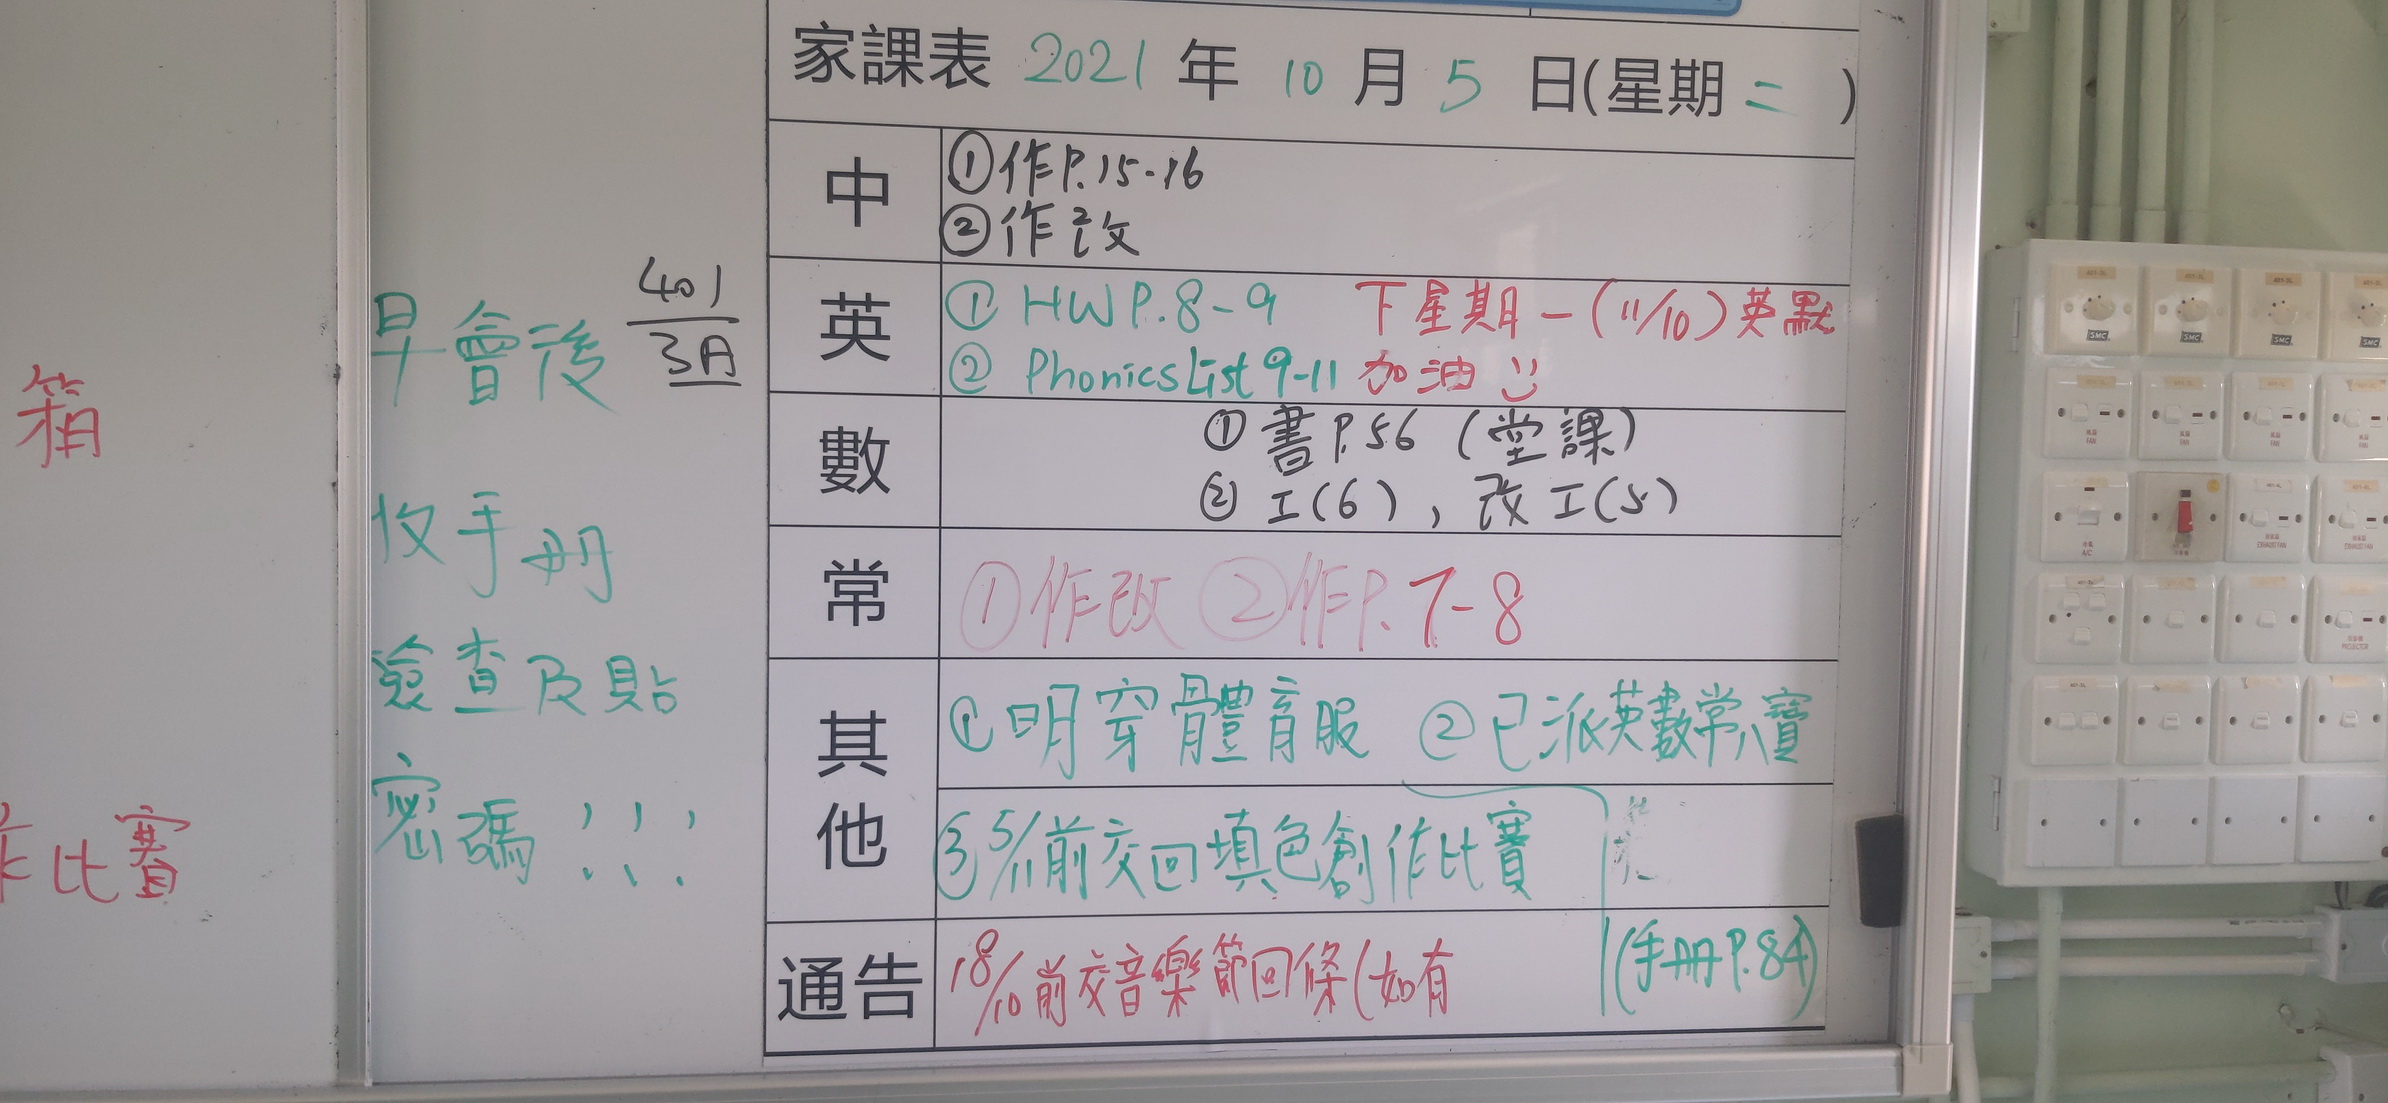 箱
作比賽
早會後
401
3A
收手冊
檢查及貼
密碼!!!
家課表 2021 年 10 月 5 日(星期二)
中
①作P.15-16
②作改
英
① HW P.8-9 下星期一(11/10)英默
② Phonics List 9-11 加油
數
① 書P.56 (堂課)
② 工(6), 改工(5)
常
①作改 ②作P.7-8
其他
①明穿體育服 ②已派英數常八寶
③5/11前交回填色創作比賽
(手冊P.84)
通告
18/10前交音樂節回條(如有
SMC
SMC
SMC
SMC